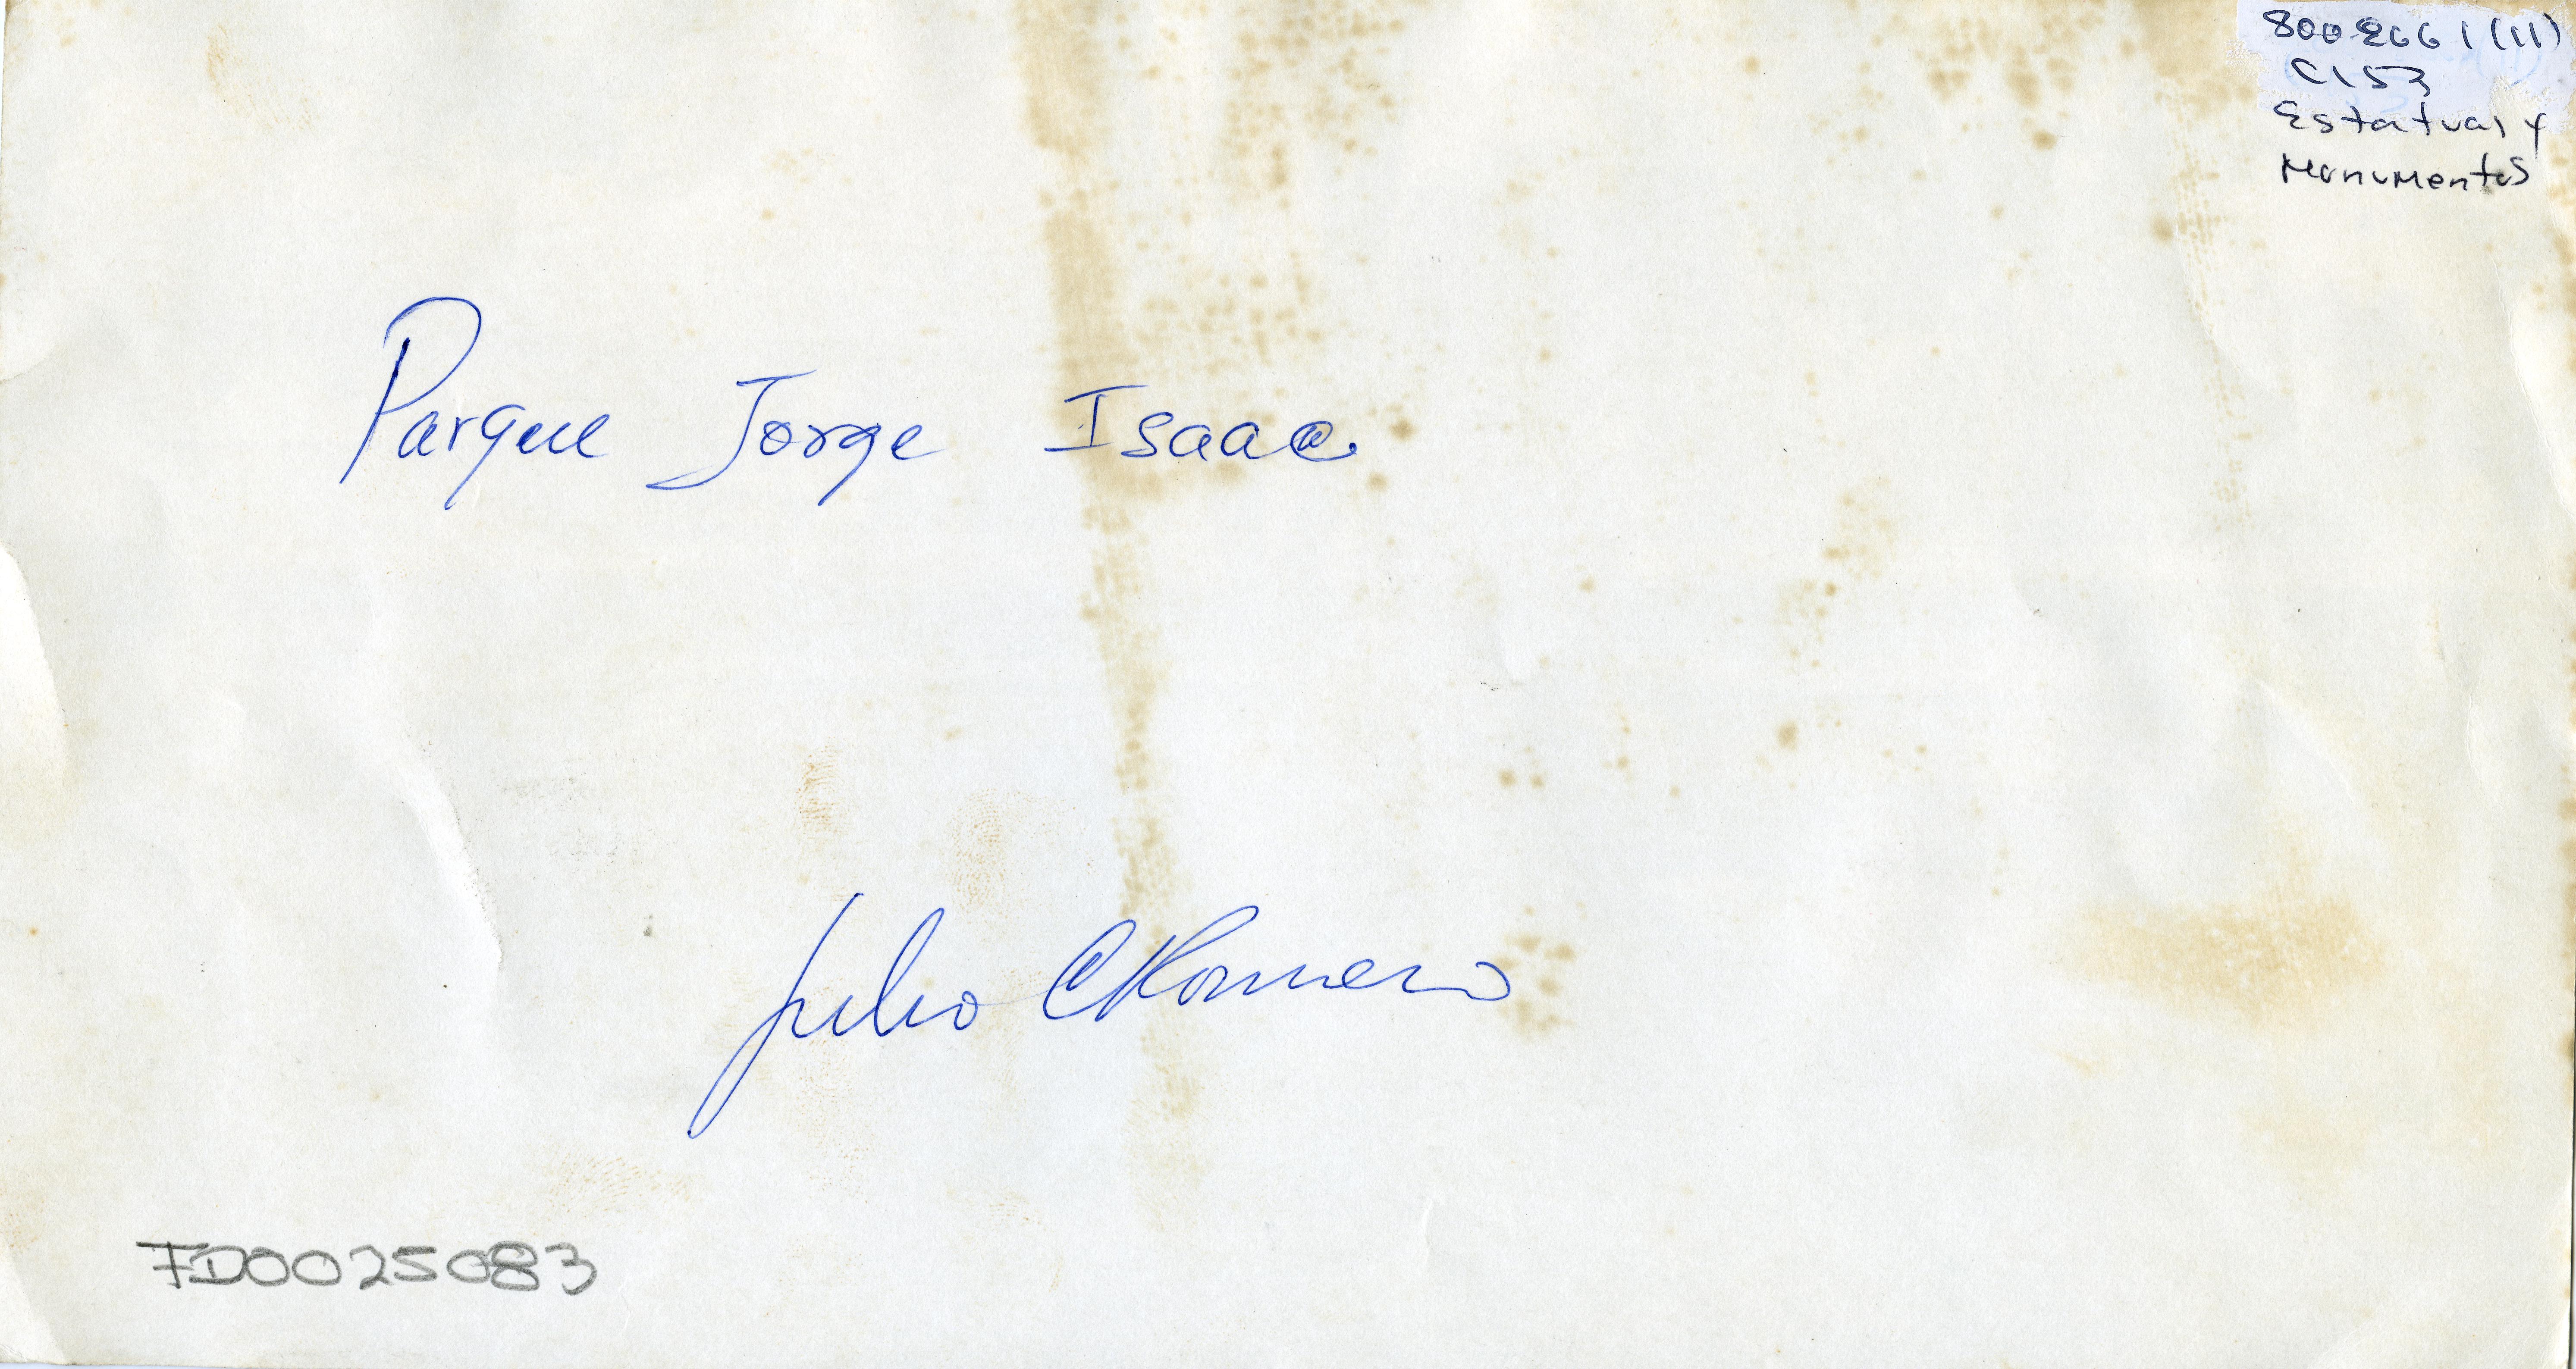 8002661(11)
C153
Estatuas y
Monumentos
Parque Jorge Isaac
Julio C Romero
FD0025083